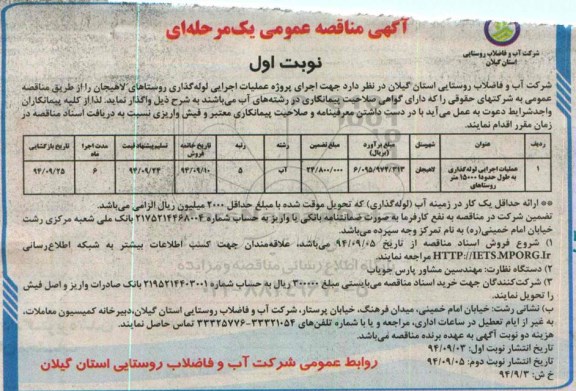 آگهی مناقصه عمومی یک‌مرحله‌ای
شرکت آب و فاضلاب روستایی
استان گیلان
نوبت اول
شرکت آب و فاضلاب روستایی استان گیلان در نظر دارد جهت اجرای پروژه عملیات اجرایی لوله‌گذاری روستاهای لاهیجان را از طریق مناقصه
عمومی به شرکتهای حقوقی را که دارای گواهی صلاحیت پیمانکاری در رشته‌های آب می‌باشند به شرح ذیل واگذار نماید. لذا از کلیه پیمانکاران
واجدشرایط دعوت به عمل می‌آید با در دست داشتن معرفینامه و صلاحیت پیمانکاری معتبر و فیش واریزی نسبت به دریافت اسناد مناقصه در
زمان مقرر اقدام نمایند.
ردیف عنوان شهرستان مبلغ برآورد (ریال) مبلغ تضمین رشته رتبه تاریخ خاتمه فروش تسلیم پیشنهاد قیمت مدت اجرا ماه تاریخ بازگشایی
۱ عملیات اجرایی لوله‌گذاری به طول حدوداً ۱۵۰۰۰ متر روستاهای لاهیجان ۶/۰۹۵/۹۷۴/۳۱۳ ۲۴/۸۰۰/۰۰۰ آب ۵ ۹۴/۰۹/۱۰ ۹۴/۰۹/۲۴ ۶ ۹۴/۰۹/۲۵
** ارائه حداقل یک کار در زمینه آب (لوله‌گذاری) که تحویل موقت شده با مبلغ حداقل ۲۰۰۰ میلیون ریال الزامی می‌باشد.
تضمین شرکت در مناقصه به نفع کارفرما به صورت ضمانتنامه بانکی یا واریز به حساب شماره ۲۱۷۵۲۱۴۴۶۸۰۰۴ بانک ملی شعبه مرکزی رشت
خیابان امام خمینی(ره) به نام تمرکز وجه سپرده می‌باشد.
۱) شروع فروش اسناد مناقصه از تاریخ ۹۴/۰۹/۰۵ می‌باشد، علاقه‌مندان جهت کسب اطلاعات بیشتر به شبکه اطلاع‌رسانی
HTTP://IETS.MPORG.Ir مراجعه نمایند.
۲) دستگاه نظارت: مهندسین مشاور پارس جویاب
۳) شرکت‌کنندگان جهت خرید اسناد مناقصه می‌بایستی مبلغ ۳۰۰۰۰۰ ریال به حساب شماره ۲۱۹۵۲۱۴۴۰۳۰۰۱ بانک صادرات واریز و اصل فیش
را تحویل نمایند.
ب) نشانی رشت: خیابان امام خمینی، میدان فرهنگ، خیابان پرستار، شرکت آب و فاضلاب روستایی استان گیلان،دبیرخانه کمیسیون معاملات،
به غیر از ایام تعطیل در ساعات اداری، مراجعه و یا با شماره تلفن‌های ۳۳۳۲۱۰۵۴-۳۳۳۲۵۷۷۶ تماس حاصل نمایند.
هزینه دو نوبت آگهی به عهده برنده مناقصه می‌باشد.
تاریخ انتشار نوبت اول: ۹۴/۰۹/۰۳
تاریخ انتشار نوبت دوم: ۹۴/۰۹/۰۵
خ ش: ۹۴/۹/۳
روابط عمومی شرکت آب و فاضلاب روستایی استان گیلان